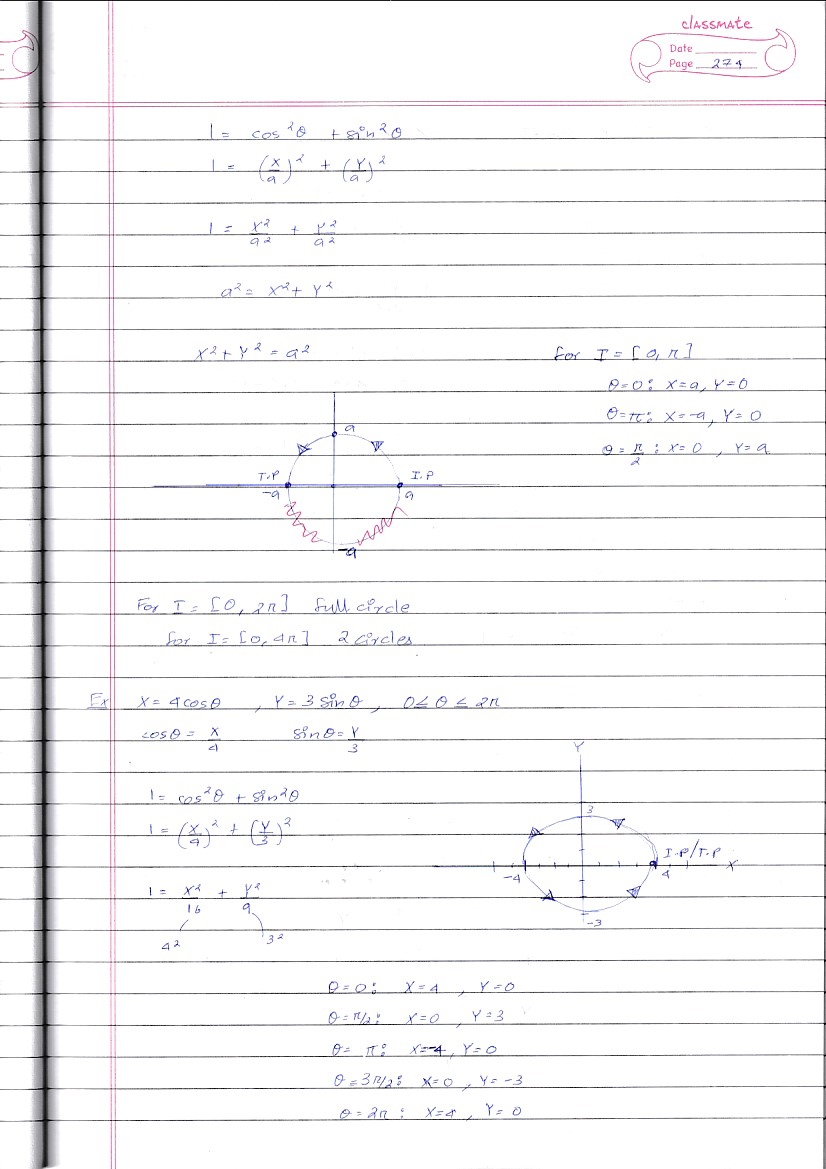 classmate
Date
Page 274
1 = cos²θ + sin²θ
1 = (x/a)² + (Y/a)²
1 = x²/a² + Y²/a²
a² = x² + Y²
x² + Y² = a²
for I = [0, π]
θ=0: x=a, Y=0
θ=π: x=-a, Y=0
θ=π/2: x=0, Y=a
a
T.P I.P
-a a
-a
For I = [0, 2π] full circle
for I = [0, 4π] 2 circles
Ex x = 4cosθ , Y = 3 sinθ , 0 ≤ θ ≤ 2π
cosθ = x/4 sinθ = Y/3
1 = cos²θ + sin²θ
1 = (x/4)² + (Y/3)²
1 = x²/16 + Y²/9
4² 3²
Y
3
I.P/T.P
-4 4 X
-3
θ=0: x=4, Y=0
θ=π/2: x=0, Y=3
θ=π: x=-4, Y=0
θ=3π/2: x=0, Y=-3
θ=2π: x=4, Y=0